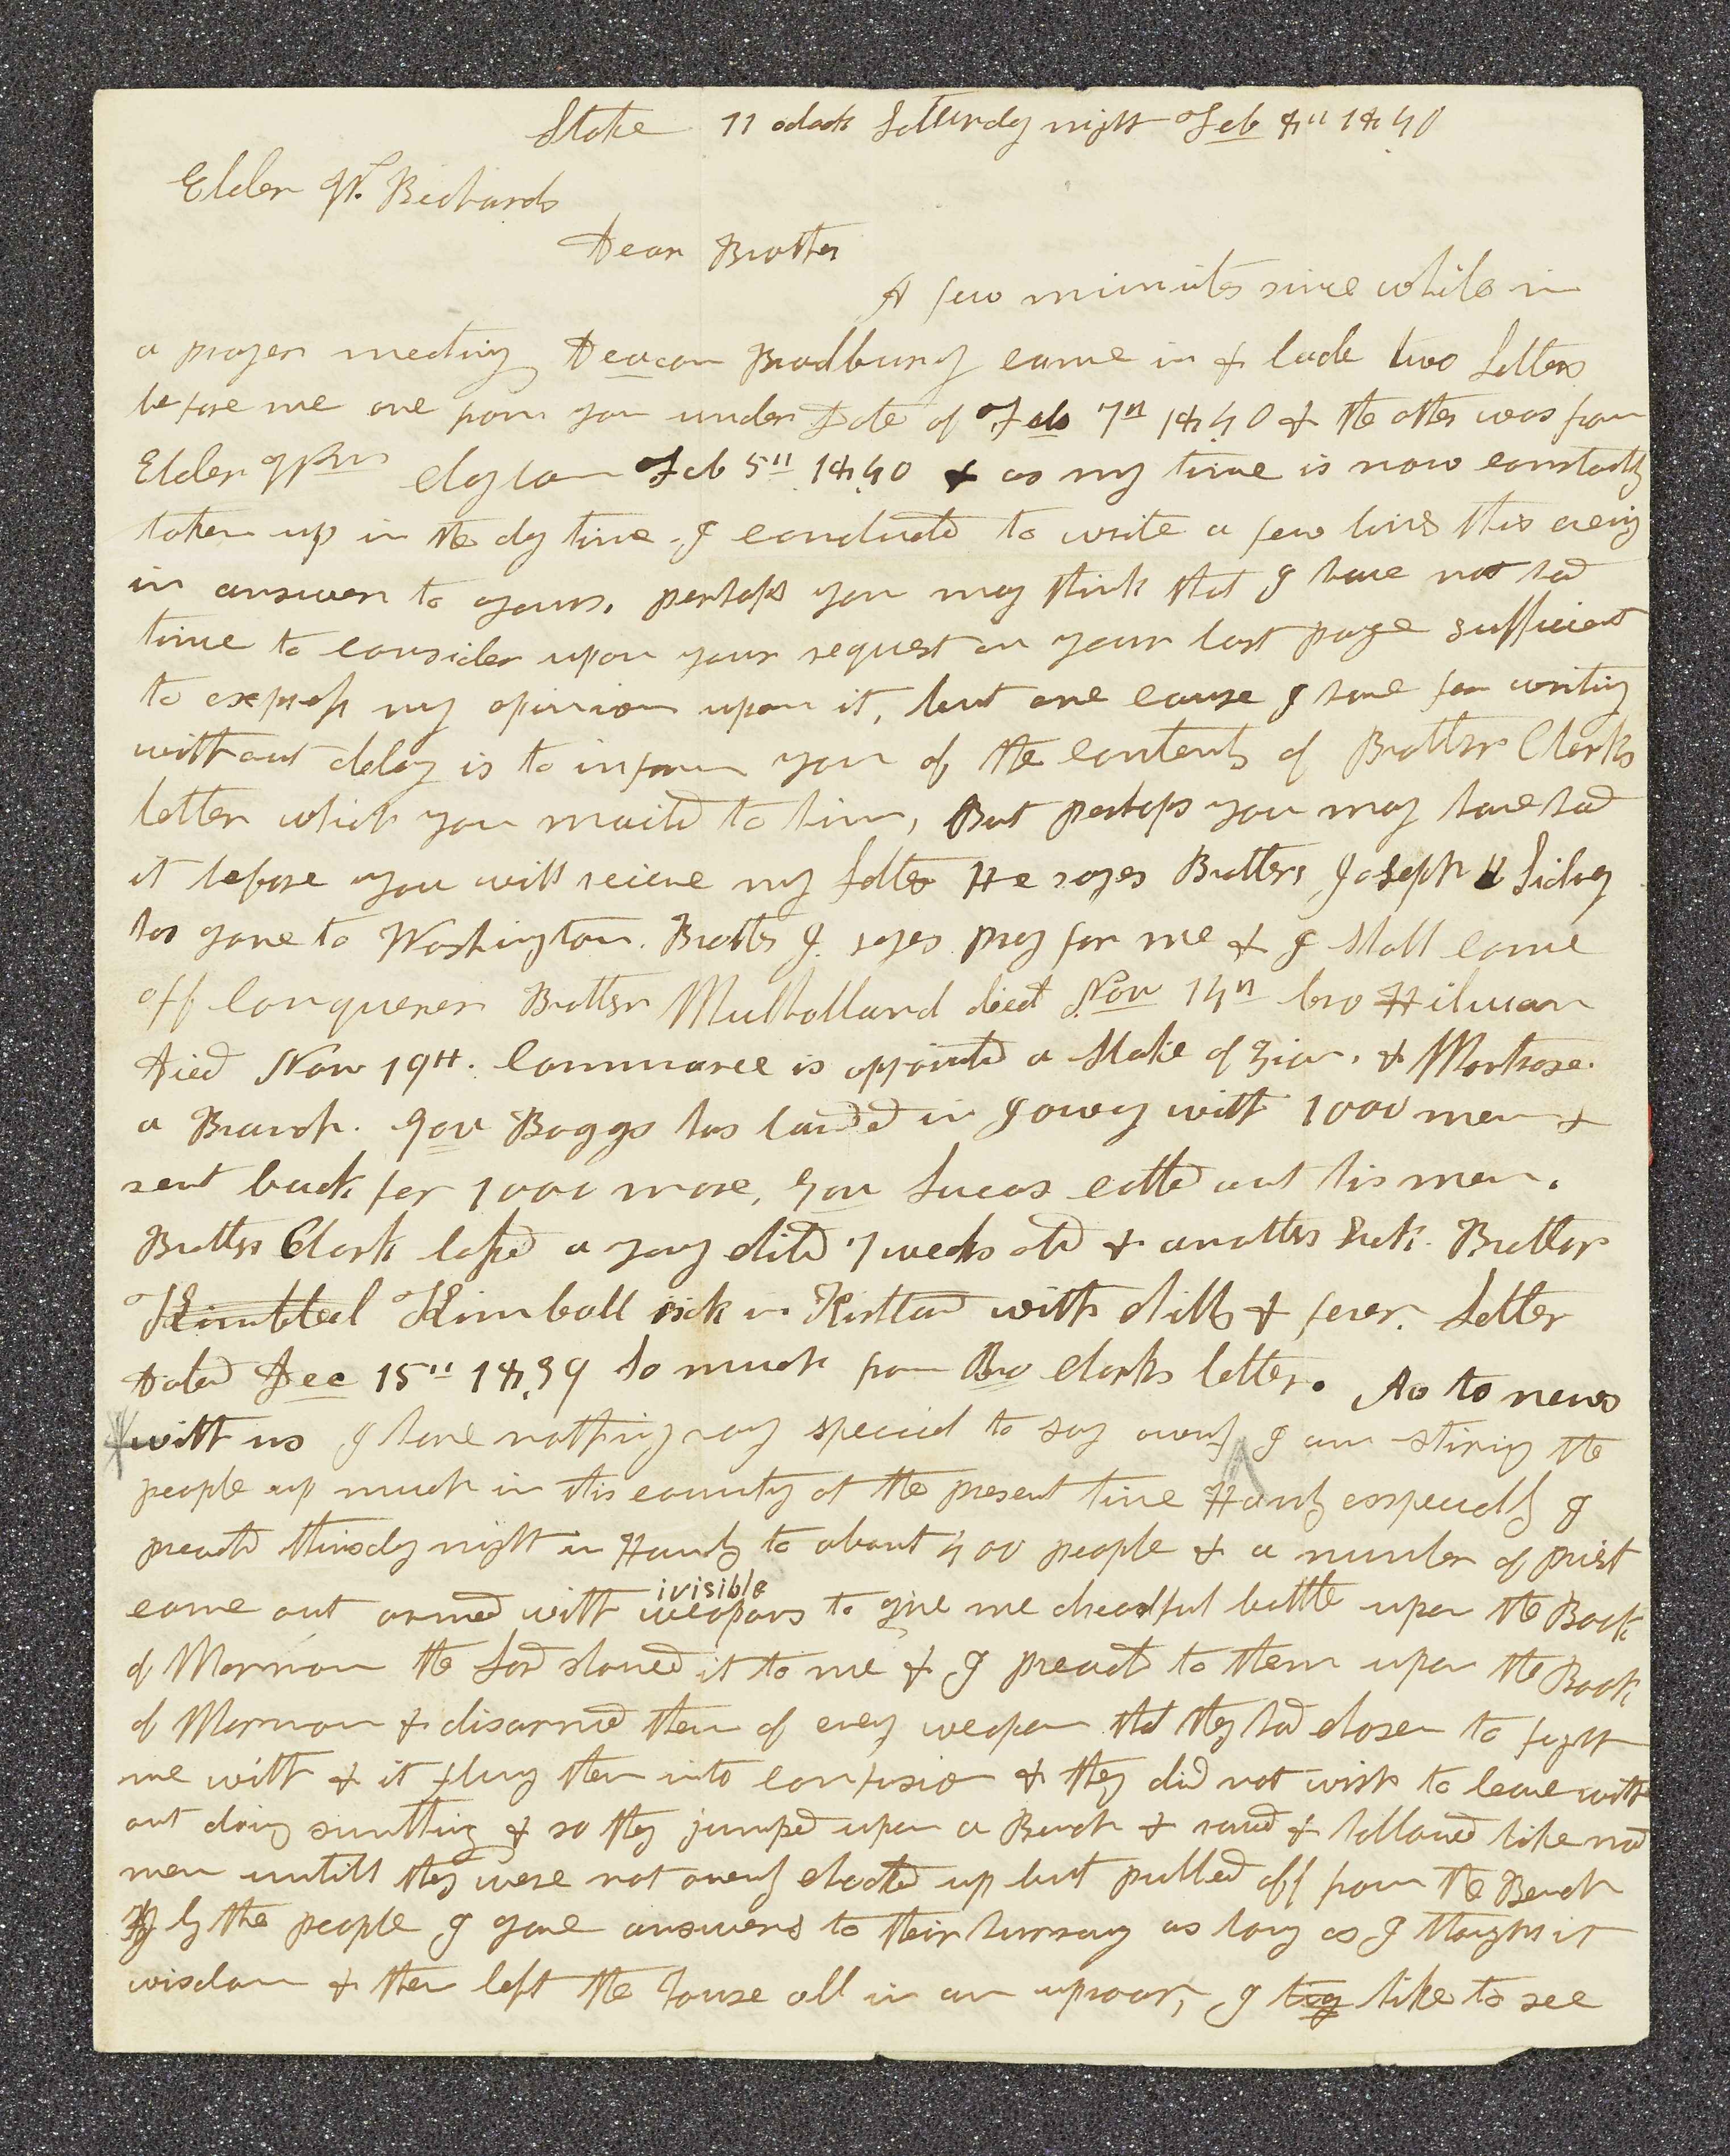 Stoke 11 oclock Satturday night Feb 8th 1840
Elder W. Richards
Dear Brother
A few minuits since while in
a prayer meeting Deacon Bradbury came in & lade two Letters
before me one from you under Date of Feb 7th 1840 & the other was from
Elder Wm Clayton Feb 5th 1840 & as my time is now constantly
taken up in the day time I concluded to write a few lines this evenig
in answer to yours. perhaps you may think that I have not had
time to consider upon your request on your last page sufficient
to express my opinion upon it, but one cause I have for writing
without delay is to inform you of the contents of Brother Clarks
letter which you maild to him, But perhaps you may have had
it before you will recieve my letter He sayes Brothers Joseph & Sidney
has gone to Washington. Brother J. sayes pray for me & I shall come
off Conquerer Brother Mulholland died Nov 14th bro Hilman
died Nov 19th. Commarce is appointed a Stake of Zion, & Montrose
a Branch. Gov Boggs has landed in Ioway with 1000 men &
sent back for 1000 more, Gov Lucas called out his men.
Brother Clark lossed a young child 7 weeks old & another sick. Brother
Kimbal Kimball sick in Kirtland with chills & fever. Letter
Dated Dec 15th 1839 So much from Bro Clarks letter. As to news
with us I have nothing vary special to say ownly I am stiring the
people up much in this county at the present time Hanly esspecially I
preachd thirsday night in Hanly to about 400 people & a number of priest
came out armed with ivisible weapons to give me dreadful battle upon the Book
of Mormon the Lord showed it to me & I preachd to them upon the Book
of Mormon & disarmed them of evry weapon that they had chosen to fight
me with & it flung them into confusion & they did not wish to leave with
out doing sumthing & so they jumped upon a Bench & raved & hallowed like mad
men untill they were not ownly choked up but pulled off from the Bench
by the people I gave answers to their hursay as long as I thought it
wisdom & then left the house all in an uproar, I like to see